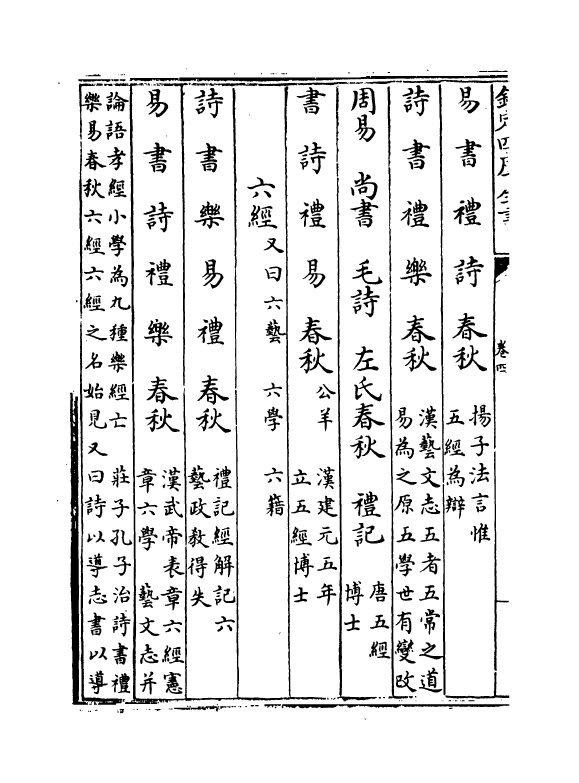 欽定四庫全書
卷四
易 書 禮 詩 春秋 揚子法言惟五經為辯
詩 書 禮 樂 春秋 漢藝文志五者五常之道易為之原五學世有變改
周易 尚書 毛詩 左氏春秋 禮記 唐五經博士
書 詩 禮 易 春秋公羊 漢建元五年立五經博士
六經又曰六藝 六學 六籍
詩 書 樂 易 禮 春秋 禮記經解記六藝政教得失
易 書 詩 禮 樂 春秋 漢武帝表章六經憲章六學 藝文志并
論語孝經小學為九種樂經亡 莊子孔子治詩書禮
樂易春秋六經六經之名始見又曰詩以導志書以導